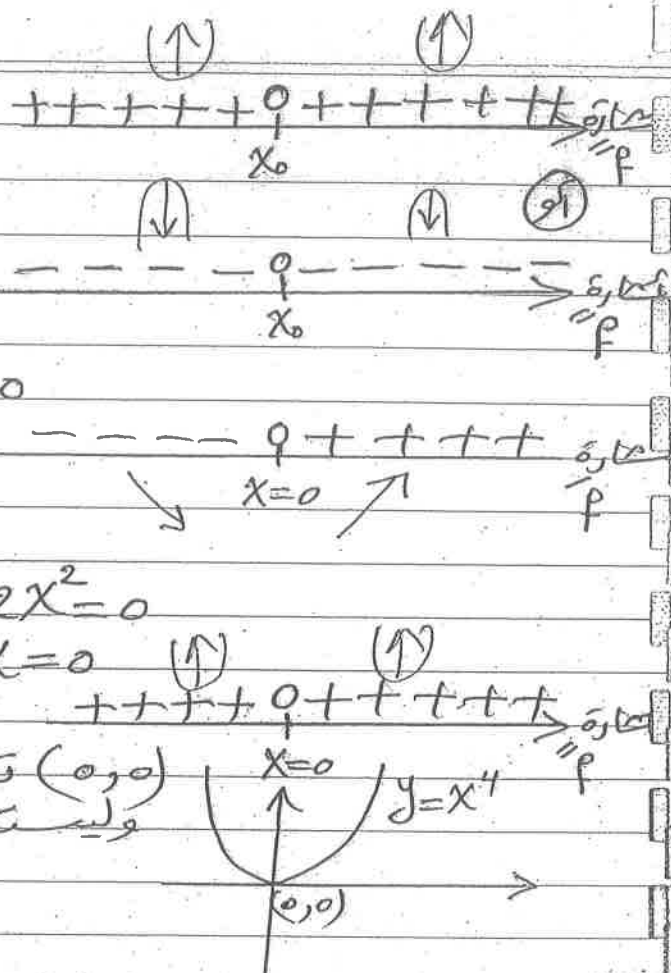 + + + + + 0 + + + + + + إشارة f''
x₀
أو
- - - - - 0 - - - - - إشارة f''
x₀
0
- - - - 0 + + + + إشارة f'
x=0
2x²=0
x=0
+ + + + 0 + + + + + إشارة f''
x=0
(0,0)
y=x⁴
وليست
(0,0)